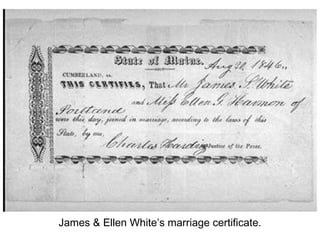 State of Maine. Aug 30, 1846.
CUMBERLAND, ss.
THIS CERTIFIES, That Mr James S. White
and Miss Ellen G. Harmon of
Portland
were this day, joined in marriage, according to the laws of this
State, by me,
Charles Harding Justice of the Peace.
James & Ellen White's marriage certificate.